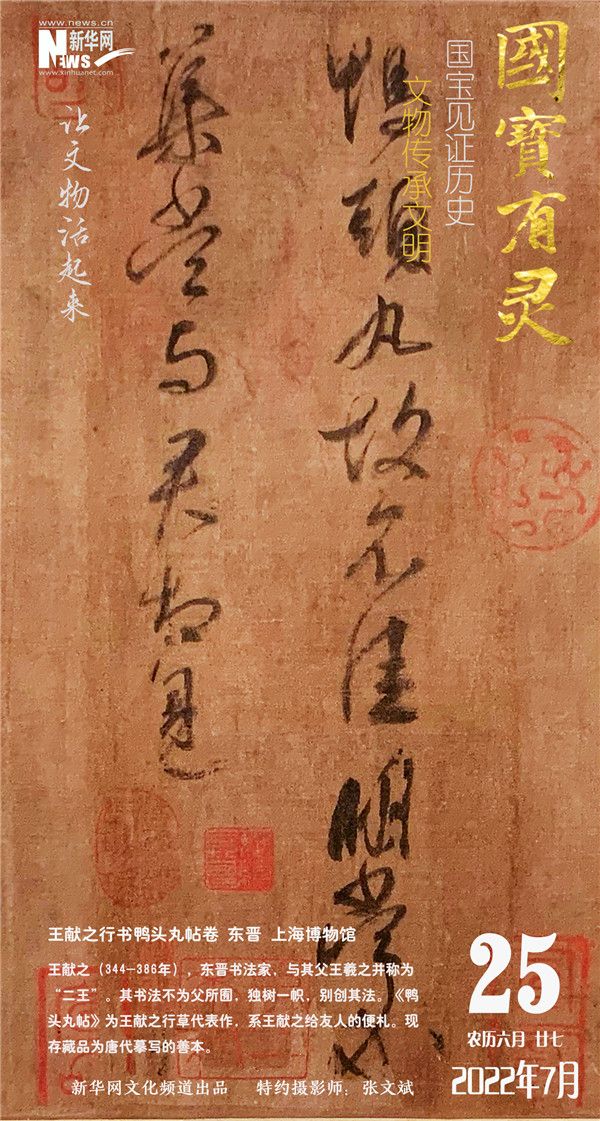 www.news.cn
新华网
NEWS
www.xinhuanet.com
國寶有灵
国宝见证历史
文物传承文明
让文物活起来
鸭头丸故不佳明当必
集当与君相见
王献之行书鸭头丸帖卷 东晋 上海博物馆
王献之（344—386年），东晋书法家，与其父王羲之并称为
“二王”。其书法不为父所囿，独树一帜，别创其法。《鸭
头丸帖》为王献之行草代表作，系王献之给友人的便札。现
存藏品为唐代摹写的善本。
新华网文化频道出品 特约摄影师：张文斌
25
农历六月 廿七
2022年7月